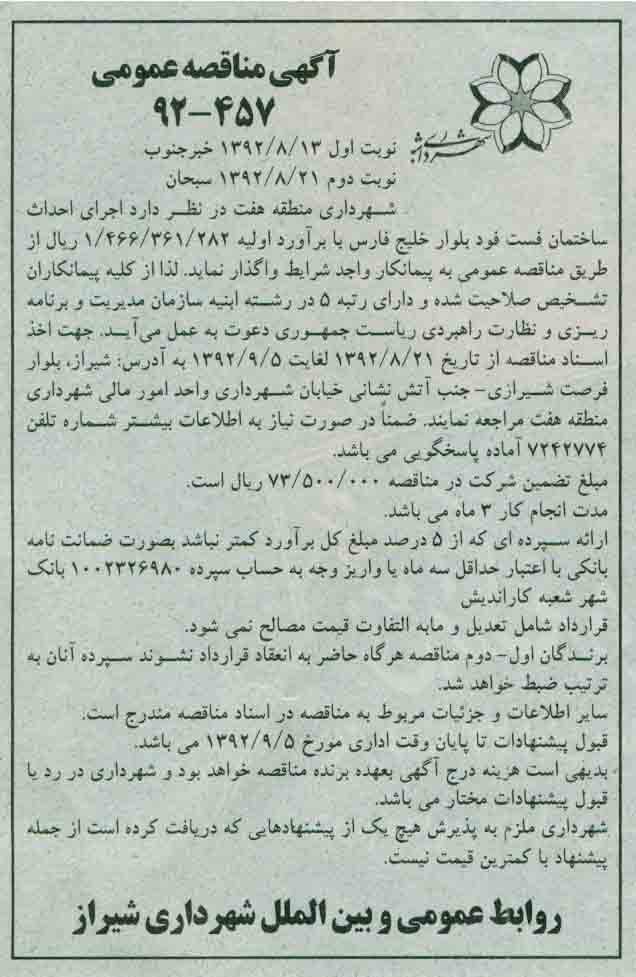 آگهی مناقصه عمومی
۹۲-۴۵۷
شهرداری شیراز
نوبت اول ۱۳۹۲/۸/۱۳ خبرجنوب
نوبت دوم ۱۳۹۲/۸/۲۱ سبحان
شهرداری منطقه هفت در نظر دارد اجرای احداث
ساختمان فست فود بلوار خلیج فارس با برآورد اولیه ۱/۴۶۶/۳۶۱/۲۸۲ ریال از
طریق مناقصه عمومی به پیمانکار واجد شرایط واگذار نماید. لذا از کلیه پیمانکاران
تشخیص صلاحیت شده و دارای رتبه ۵ در رشته ابنیه سازمان مدیریت و برنامه
ریزی و نظارت راهبردی ریاست جمهوری دعوت به عمل می‌آید. جهت اخذ
اسناد مناقصه از تاریخ ۱۳۹۲/۸/۲۱ لغایت ۱۳۹۲/۹/۵ به آدرس: شیراز، بلوار
فرصت شیرازی- جنب آتش نشانی خیابان شهرداری واحد امور مالی شهرداری
منطقه هفت مراجعه نمایند. ضمناً در صورت نیاز به اطلاعات بیشتر شماره تلفن
۷۲۴۲۷۷۴ آماده پاسخگویی می باشد.
مبلغ تضمین شرکت در مناقصه ۷۳/۵۰۰/۰۰۰ ریال است.
مدت انجام کار ۳ ماه می باشد.
ارائه سپرده ای که از ۵ درصد مبلغ کل برآورد کمتر نباشد بصورت ضمانت نامه
بانکی با اعتبار حداقل سه ماه یا واریز وجه به حساب سپرده ۱۰۰۲۳۲۶۹۸۰ بانک
شهر شعبه کاراندیش
قرارداد شامل تعدیل و مابه التفاوت قیمت مصالح نمی شود.
برندگان اول- دوم مناقصه هرگاه حاضر به انعقاد قرارداد نشوند سپرده آنان به
ترتیب ضبط خواهد شد.
سایر اطلاعات و جزئیات مربوط به مناقصه در اسناد مناقصه مندرج است.
قبول پیشنهادات تا پایان وقت اداری مورخ ۱۳۹۲/۹/۵ می باشد.
بدیهی است هزینه درج آگهی بعهده برنده مناقصه خواهد بود و شهرداری در رد یا
قبول پیشنهادات مختار می باشد.
شهرداری ملزم به پذیرش هیچ یک از پیشنهادهایی که دریافت کرده است از جمله
پیشنهاد با کمترین قیمت نیست.
روابط عمومی و بین الملل شهرداری شیراز